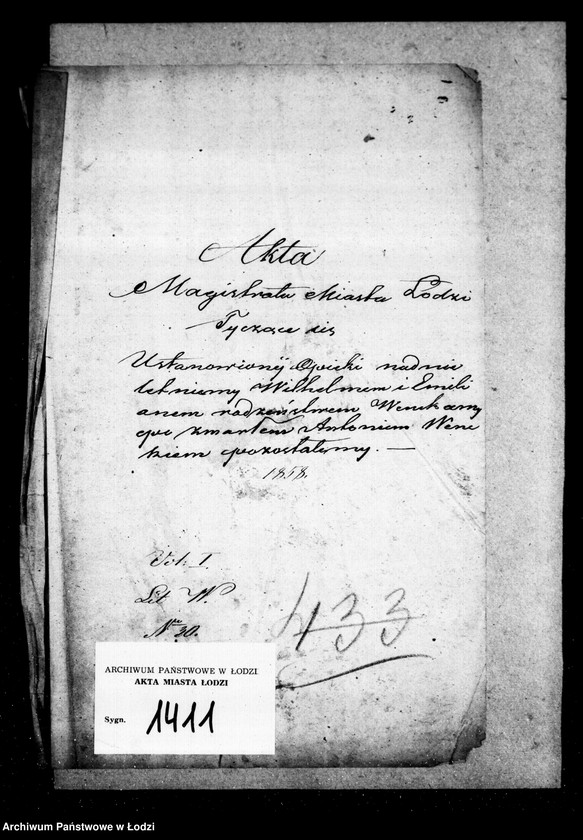 Akta
Magistratu Miasta Łodzi
Tyczące się
Ustanowionÿ Opieki nad nie
letniemy Wilhelmem i Emili
anem rodzeństwem Wenckamy
po zmarłem Antoniem Wenc
kiem pozostałemy. —
1858.
Vol: I.
Lit. W.
Nro 30.
433
ARCHIWUM PAŃSTWOWE W ŁODZI
AKTA MIASTA ŁODZI
Sygn. 1411
Archiwum Państwowe w Łodzi